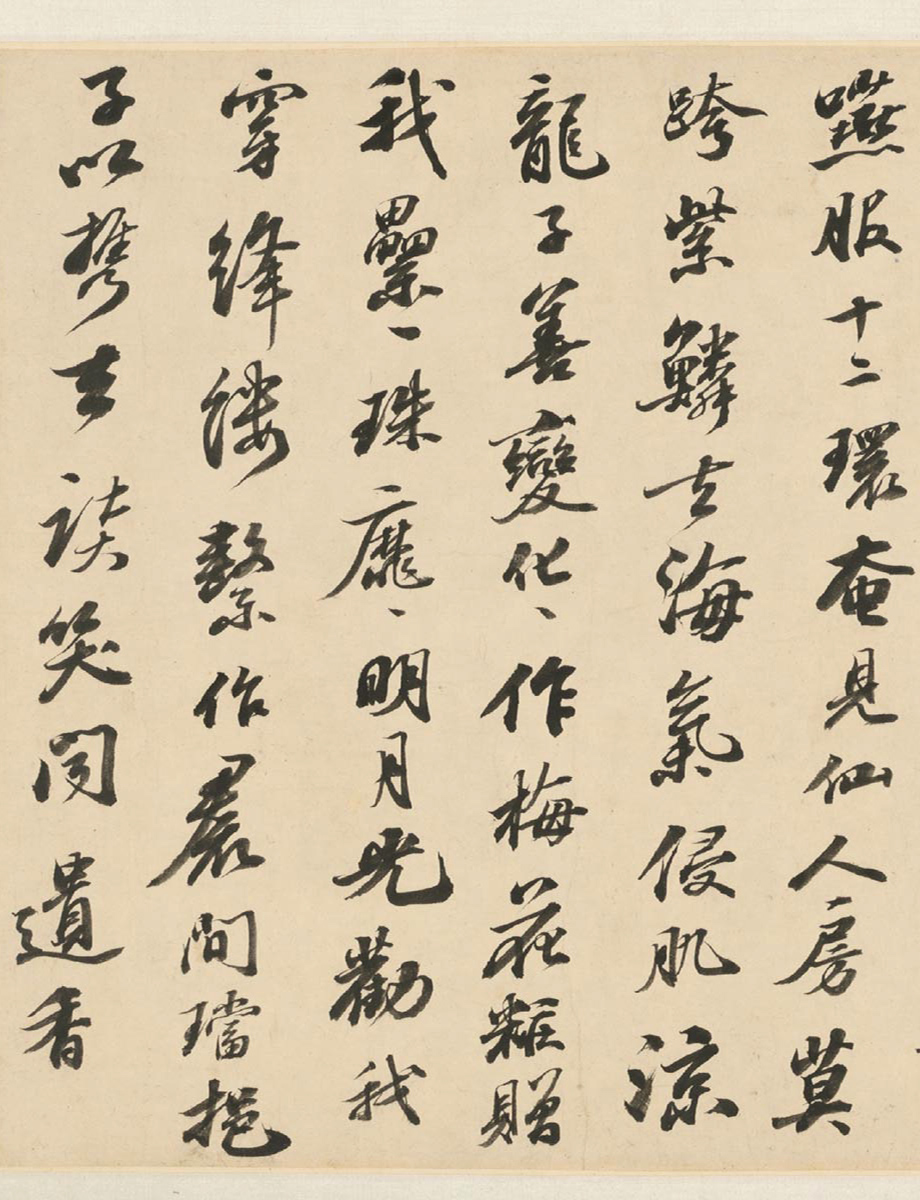 嚥服十二環奄見仙人房莫
跨紫鱗去海氣侵肌涼
龍子善變化、作梅花粧贈
我纍、珠靡、明月光勸我
穿絳縷繫作裠間璫挹
子以攜去談笑聞遺香